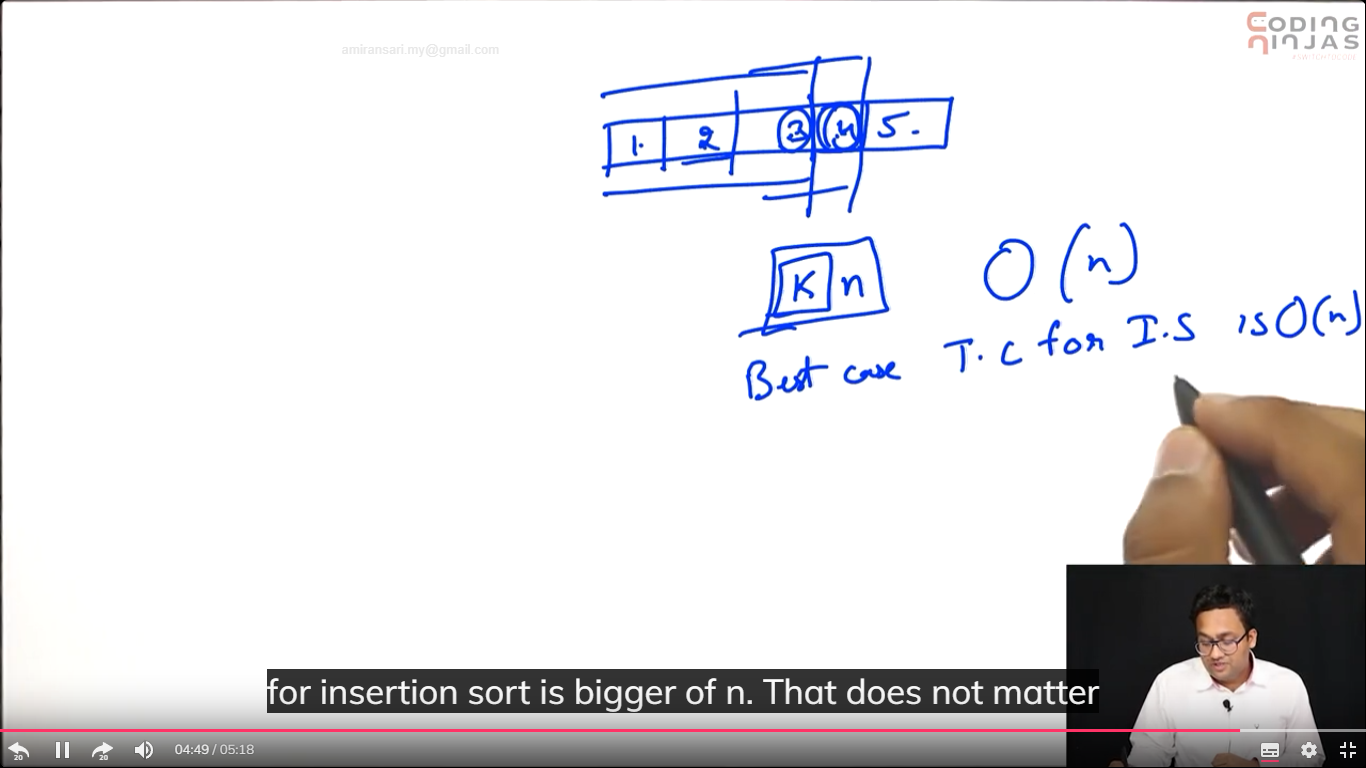 amiransari.my@gmail.com
CODING
NINJAS
1. 2 3 4 5.
K n O(n)
Best case T.C for I.S is O(n)
for insertion sort is bigger of n. That does not matter
20 20 04:49 / 05:18